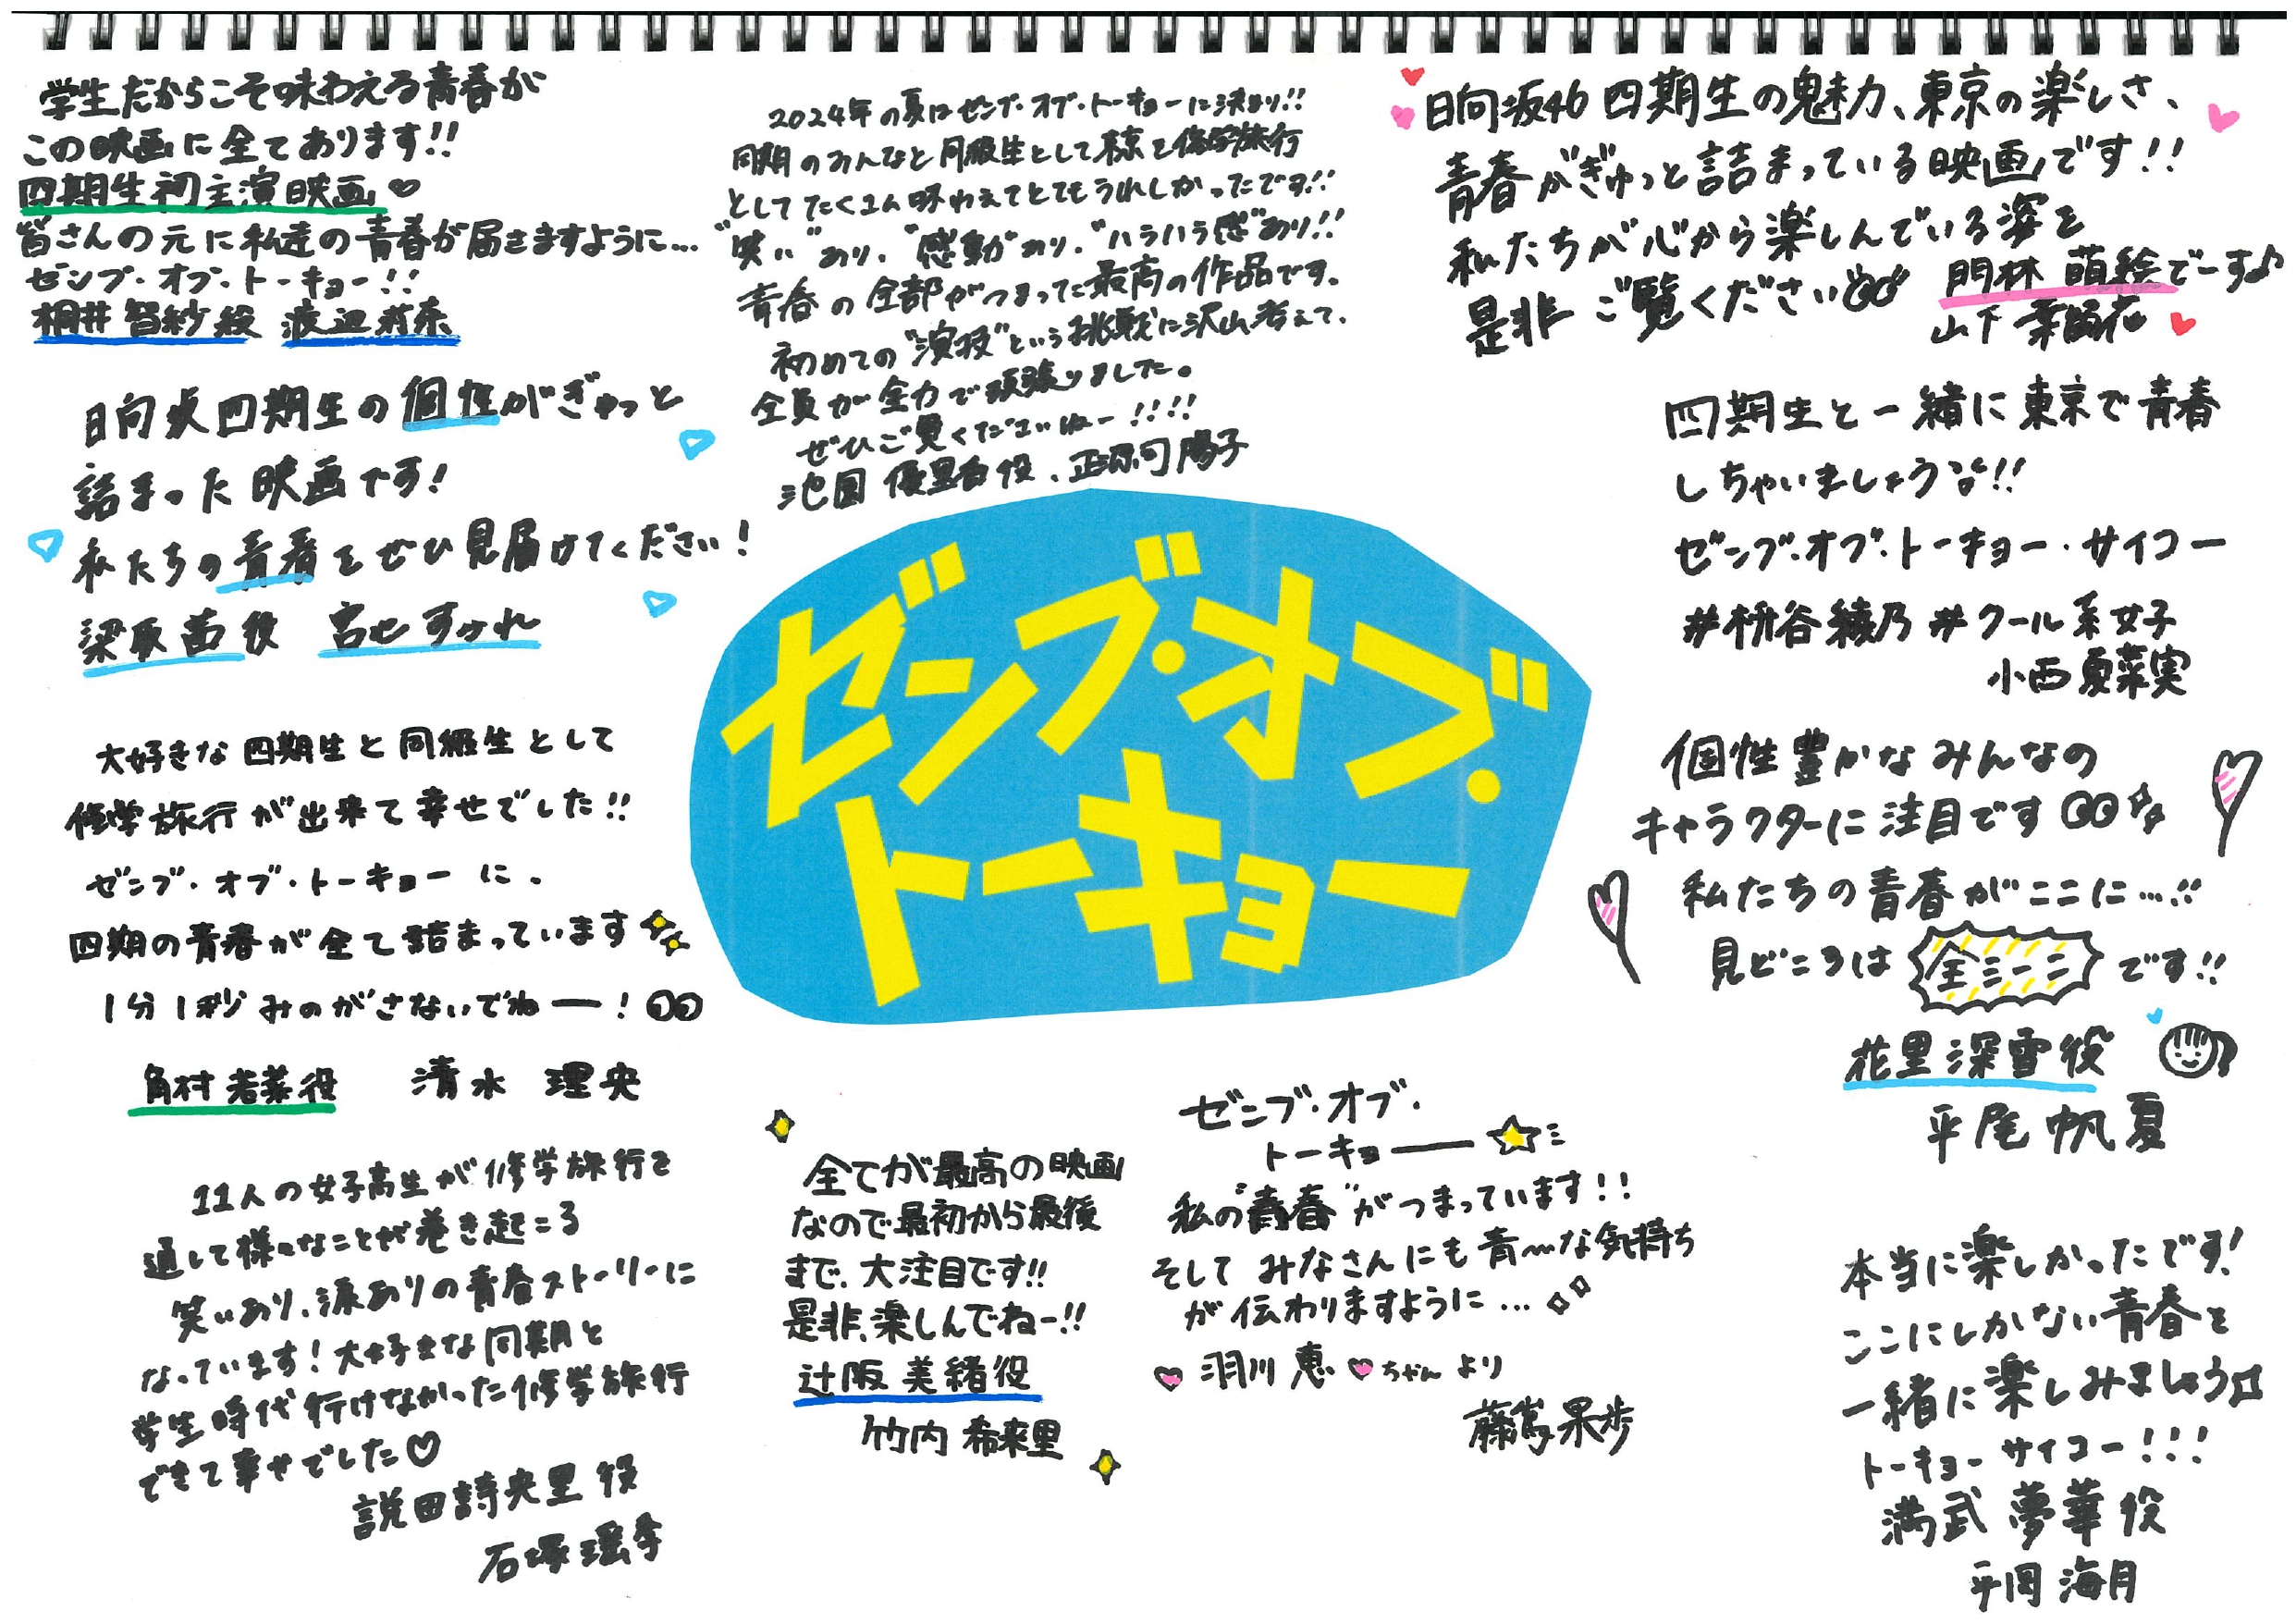 学生だからこそ味わえる青春が
この映画に全てあります!!
四期生初主演映画♡
皆さんの元に私達の青春が届きますように…
ゼンブ・オブ・トーキョー!!
桐井智紗絵 渡辺莉奈
日向坂四期生の個性がぎゅっと
詰まった映画です!
私たちの青春をぜひ見届けてください!
梁取茜役 宮地すみれ
大好きな四期生と同級生として
修学旅行が出来て幸せでした!!
ゼンブ・オブ・トーキョーに、
四期の青春が全て詰まっています
1分1秒みのがさないでねー!
角村若菜役 清水理央
11人の女子高生が修学旅行を
通して様々なことが巻き起こる
笑いあり、涙ありの青春ストーリーに
なっています!大好きな同期と
学生時代行けなかった修学旅行
できて幸せでした♡
説田詩央里役
石塚瑶季
2024年の夏はゼンブ・オブ・トーキョーに決まり!!
同期のみんなと同級生として東京を修学旅行
としてたくさん味わえてとてもうれしかったです!!
"笑い"あり、"感動"あり、"ハラハラ感"あり!!
青春の全部がつまった最高の作品です。
初めての"演技"という挑戦に沢山考えて、
全員が全力で頑張りました。
ぜひご覧くださいねー!!!!
池園優里香役、正源司陽子
ゼンブ・オブ・
トーキョー
全てが最高の映画
なので最初から最後
まで、大注目です!!
是非、楽しんでねー!!
辻阪美緒役
竹内希来里
ゼンブ・オブ・
トーキョー
私の"青春"がつまっています!!
そしてみなさんにも青〜な気持ち
が伝わりますように…
羽川恵ちゃんより
藤嶌果歩
日向坂46四期生の魅力、東京の楽しさ、
青春がぎゅっと詰まっている映画です!!
私たちが心から楽しんでいる姿を
是非ご覧ください
門林萌絵でーす♪
山下葉留花
四期生と一緒に東京で青春
しちゃいましょう!!
ゼンブ・オブ・トーキョー・サイコー
#枡谷綾乃 #クール系女子
小西夏菜実
個性豊かなみんなの
キャラクターに注目です
私たちの青春がここに…!!
見どころは全シーンです!!
花里深雪役
平尾帆夏
本当に楽しかったです!
ここにしかない青春を
一緒に楽しみましょう
トーキョーサイコー!!!
満武夢華役
平岡海月